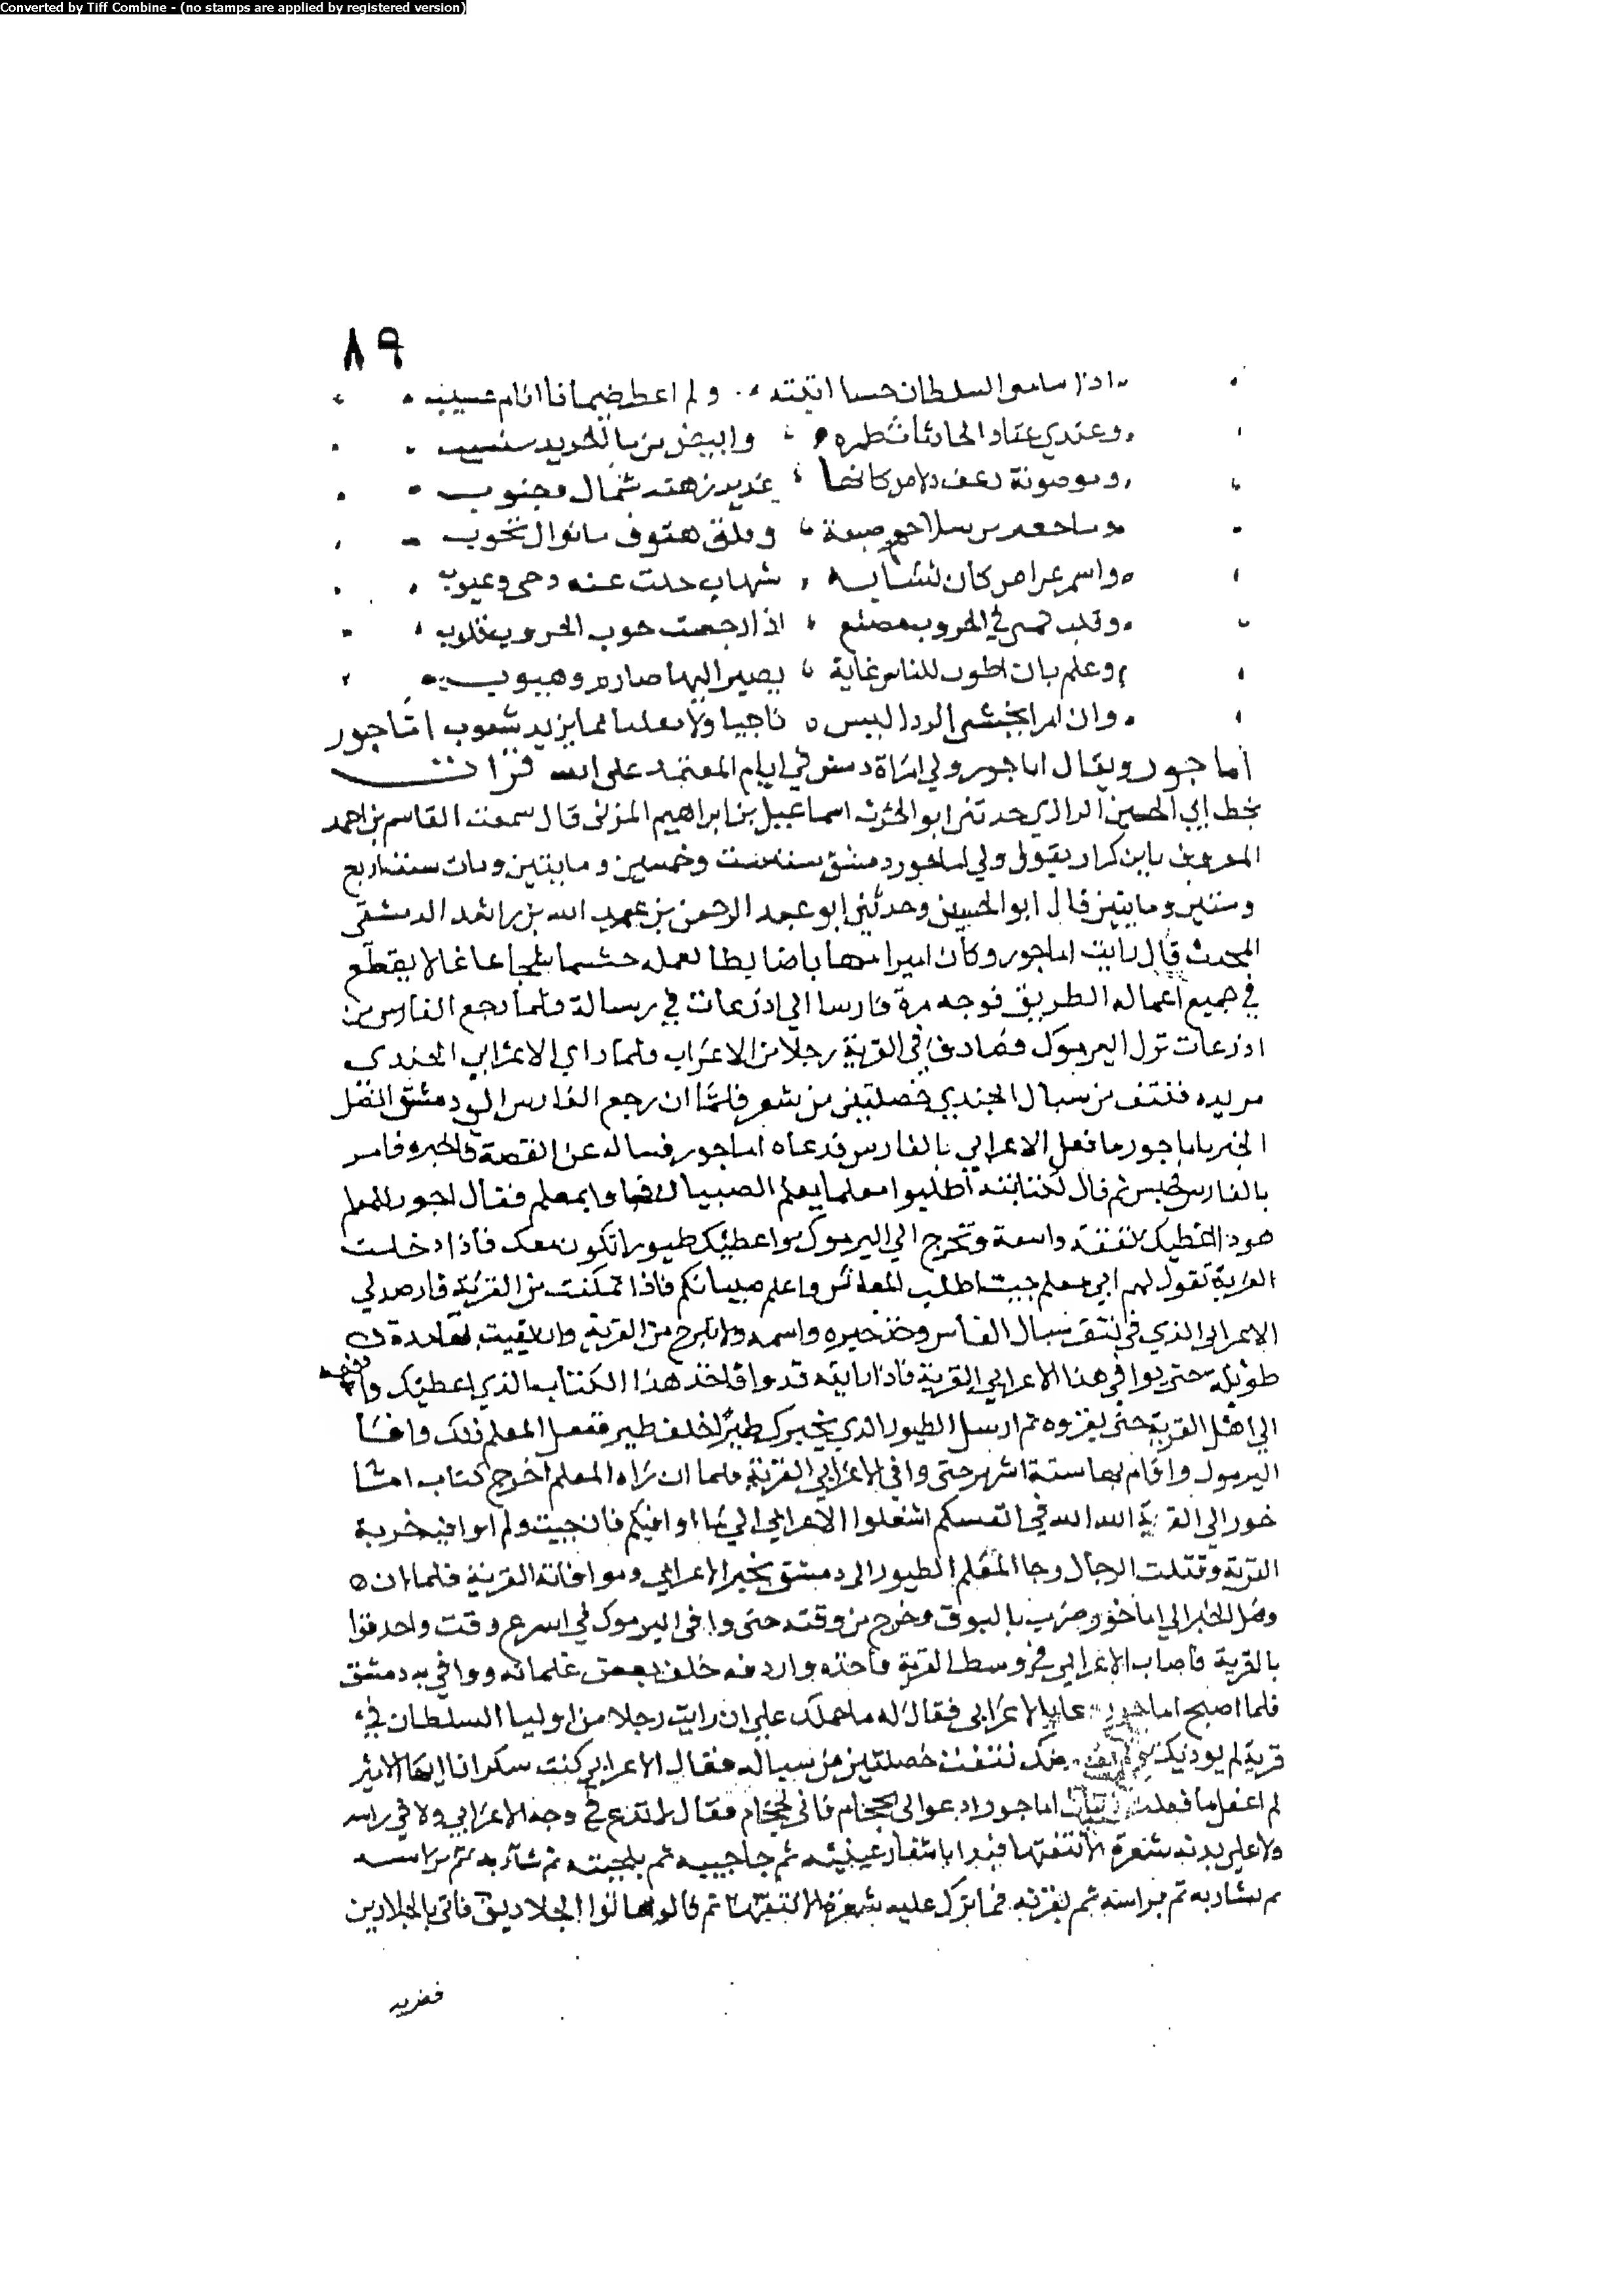 Converted by Tiff Combine - (no stamps are applied by registered version)
٨٩
اذا السلطان حسا اتيته ولم اعط ضيما ما اقام عسيب
وعندي عتاد الحادثات طمره وابيض من ما الحديد
وموضونة زعف دلاص كانها غدير زهته شمال وجنوب
هتوف
واسمر عراص كان لسنانه شهاب عنه دجى وغيوب
وقلب في الحروب مصنع اذا رجعت الحروب
وعلم بان للناس غاية يصير اليها صارم وهيوب
وان امرا يخشى الردا ليس ناجيا ولا مما يريد شعوب اماجور
أماجور ويقال اماجور ولي امراة دمشق في ايام المعتمد على الله قرأت
بخط ابي الحسين الرازي حدثني ابو الحرث اسماعيل بن ابراهيم المزنى قال سمعت القاسم بن احمد
المعروف بابن كرار يقول ولي اماجور دمشق سنة ست وخمسين ومايتين ومات سنة اربع
وستين ومايتين قال ابو الحسين وحدثني ابو عبد الرحمن بن عبد الله بن راشد الدمشقى
المحدث قال رايت اماجور وكان اميرا مهابا ضابطا لعمله شجاعا لا يقطع
في جميع اعماله الطريق فوجه مرة فارسا الى اذرعات في رسالة فلما رجع الفارس من
اذرعات نزل اليرموك فصادف في القرية رجلا من الاعراب فلما راى الاعرابي الجندى
مد يده فنتف من سبال الجندي خصلتين من شعر فلما ان رجع الفارس الى دمشق اتصل
الخبر باماجور ما فعل الاعرابي بالفارس فدعاه اماجور فساله عن القصة فاخبره فامر
بالفارس فحبس ثم قال لكتابته اطلبوا معلما يعلم الصبيان فجاوا بمعلم فقال اجور للمعلم
هوذا اعطيك نفقة واسعة وتخرج الى اليرموك واعطيك طيورا تكون معك فاذا دخلت
القرية تقول لهم اني معلم جيت اطلب المعاش واعلم صبيانكم فاذا تمكنت من القرية فارصد لي
الاعرابي الذي نتف سبال الفارس وخذ خبره واسمه ولا تبرح من القرية وان بقيت بها مدة
طويلة حتى يوافي هذا الاعرابي القرية فاذا رايته قد وافا خذ هذا الكتاب الذي اعطيك وادفعه
الى اهل القرية حتى يقروه ثم ارسل الطيور الذي بخبرك طيرا خلف طير ففعل المعلم ذلك وافا
اليرموك واقام بها ستة اشهر حتى وافى الاعرابي القرية فلما ان راه المعلم اخرج كتاب اما
خور الى القرية الله الله في انفسكم اشغلوا الاعرابي الى ما اوافيكم فان جيت ولم اوافيه خربة
القرية وقتلت الرجال وجا المعلم الطيور الى دمشق بخبر الاعرابي وموافاته القرية فلما ان
وصل الخبر الى اماخور ضرب بالبوق وخرج من وقته حتى وافى اليرموك في اسرع وقت واحدقوا
بالقرية فاصاب الاعرابي في وسط القرية فاخذه واردفه خلف بعض غلمانه ووافي به دمشق
فلما اصبح اماجور دعا بالاعرابي فقال له ما حملك على ان رايت رجلا من اوليا السلطان في
قرية لم يوذيك نتفت خصلتين من سباله فقال الاعرابي كنت سكرانا ايها الامير
لم اعقل ما فعلت فقال اماجور ادعوا الى بحجام فاتى بحجام فقال لا تدع في وجه الاعرابي ولا في راسه
ولا على بدنه شعرة الا نتفتها فبدا باشفار عينيه ثم حاجبيه ثم بلحيته ثم شاربه ثم براسه
ثم بشاربه ثم براسه ثم بقرنه فما ترك عليه شعرة الا نتفها ثم قال هاتوا الجلادين فاتى بالجلادين
فضربه